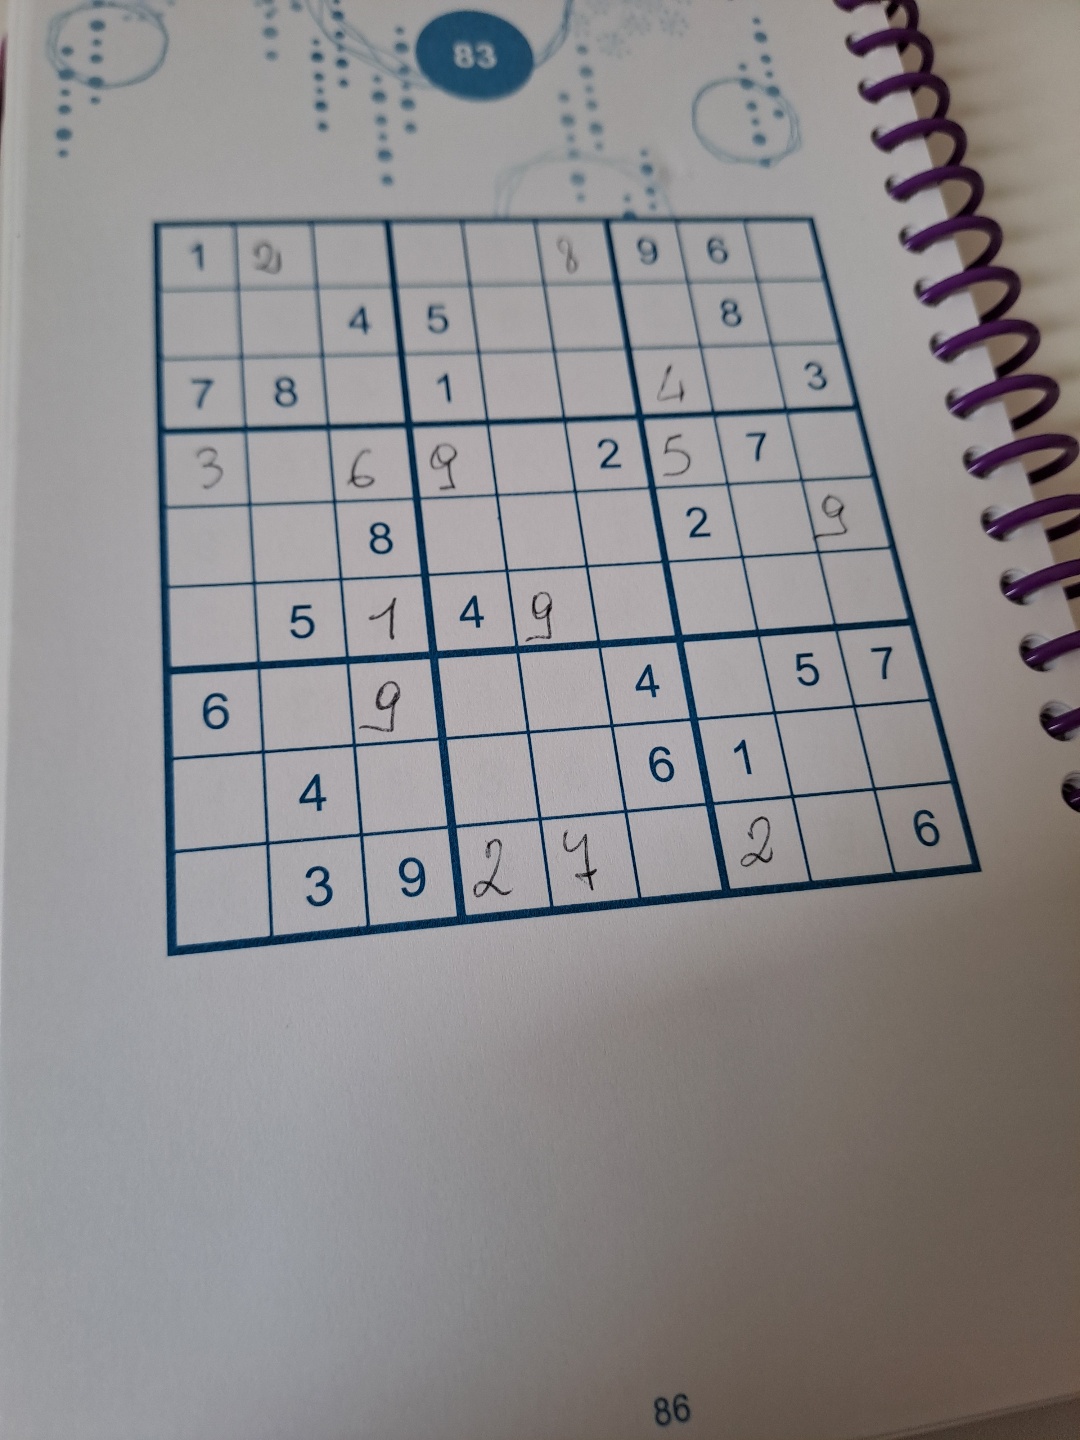 83
1 2 8 9 6
4 5 8
7 8 1 4 3
3 6 9 2 5 7
8 2 9
5 1 4 9
6 9 4 5 7
4 6 1
3 9 2 7 2 6
86